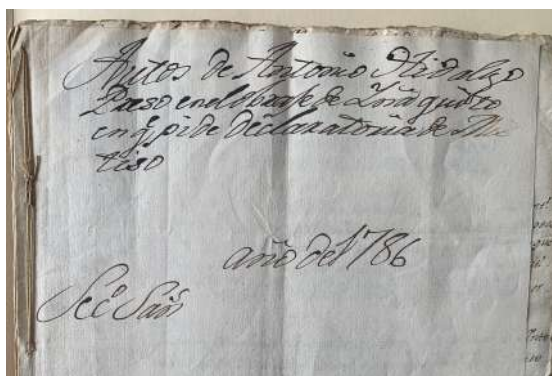 Autos de Antonio Hidalgo
Preso en el obraje de Iñaquito
en q̃ pide declaratoria de Mes
tiso
año de 1786